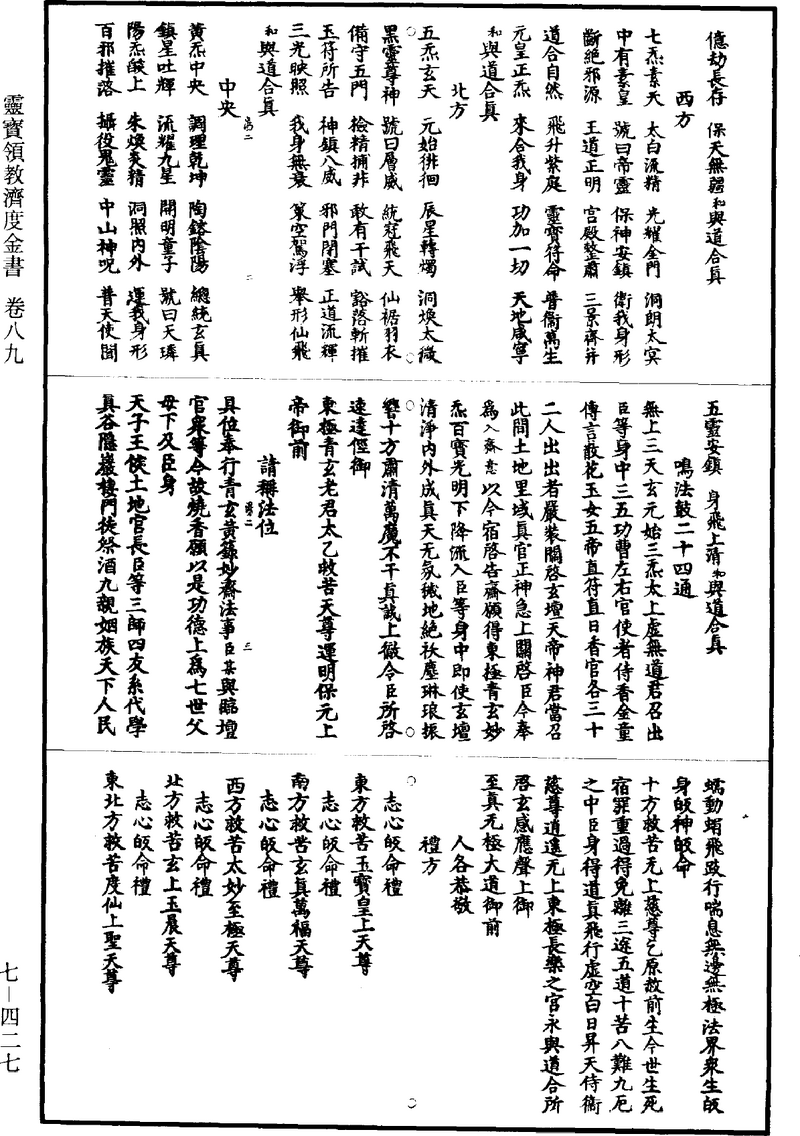 億劫長存　保天無疆和與道合真
西方
七炁素天　太白流精　光耀金門　洞朗太冥
中有素皇　號曰帝靈　保神安鎮　衛我身形
斷絶邪源　王道正明　宮殿整肅　三景齊幷
道合自然　飛升紫庭　靈寶符命　普衞萬生
元皇正炁　來合我身　功加一切　天地咸寧
和與道合真
北方
五炁玄天　元始徘徊　辰星轉燭　洞煥太微
黑靈尊神　號曰層威　統冠飛天　仙裾羽衣
備守五門　檢精捕非　敢有干試　豁落斬摧
玉符所告　神鎮八威　邪門閉塞　正道流輝
三光映照　我身無衰　策空駕浮　舉形仙飛
和與道合真
中央
黃炁中央　調理乾坤　陶鎔陰陽　總統玄真
鎮星吐輝　流耀九星　開明童子　號曰天璘
陽炁醆上　朱煥夾精　洞照內外　運我身形
百邪摧落　攝役鬼靈　中山神呪　普天使聞
五靈安鎮　身飛上清和與道合真
鳴法鼓二十四通
無上三天玄元始三炁太上虛無道君召出
臣等身中三五功曹左右官使者侍香金童
傳言散花玉女五帝直符直日香官各三十
二人出出者嚴裝關啓玄壇天帝神君當召
此間土地里域真官正神急上關啓臣今奉
爲入齋意以今宿啓告齋願得東極青玄妙
炁百寶光明下降流入臣等身中即使玄壇
清淨內外成真天无氛穢地絶袄塵琳琅振
響十方肅清萬魔不干真誠上徹令臣所啓
速達徑御
東極青玄老君太乙救苦天尊運明保元上
帝御前
請稱法位
具位奉行青玄黃籙妙齋法事臣某與臨壇
官衆等今故燒香願以是功德上爲七世父
母下及臣身
天子王侯土地官長臣等三師四友糸代學
真谷隱巖棲門徒祭酒九親姻族天下人民
蠕動蜎飛跂行喘息無邊無極法界衆生皈
身皈神皈命
十方救苦无上慈尊乞原赦前生今世生死
宿罪重過得免離三途五道十苦八難九厄
之中臣身得道真飛行虛空白日昇天侍衞
慈尊逍遙无上東極長樂之宮永與道合所
啓玄感應聲上御
至真无極大道御前
人各恭敬
禮方
志心皈命禮
東方救苦玉寶皇上天尊
志心皈命禮
南方救苦玄真萬福天尊
志心皈命禮
西方救苦太妙至極天尊
志心皈命禮
北方救苦玄上玉晨天尊
志心皈命禮
東北方救苦度仙上聖天尊
靈寶領教濟度金書　卷八九
七—四二七